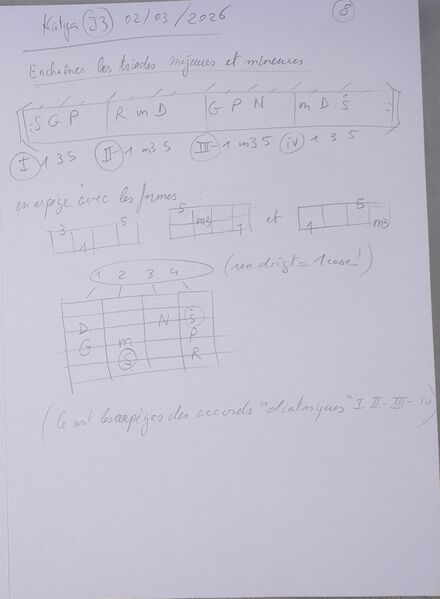 Katya (J3) 02/03/2026
8
Enchaîner les triades majeures et mineures
S G P R m D G P N m D Ṡ
I 1 3 5 II- 1 m3 5 III- 1 m3 5 IV 1 3 5
en arpège avec les formes
3 1 5 5 m3 1 et 1 5 m3
1 2 3 4 (un doigt = 1 case !)
D N Ṡ
G m P
S R
(Ce sont les arpèges des accords "diatoniques" I II- III- IV)